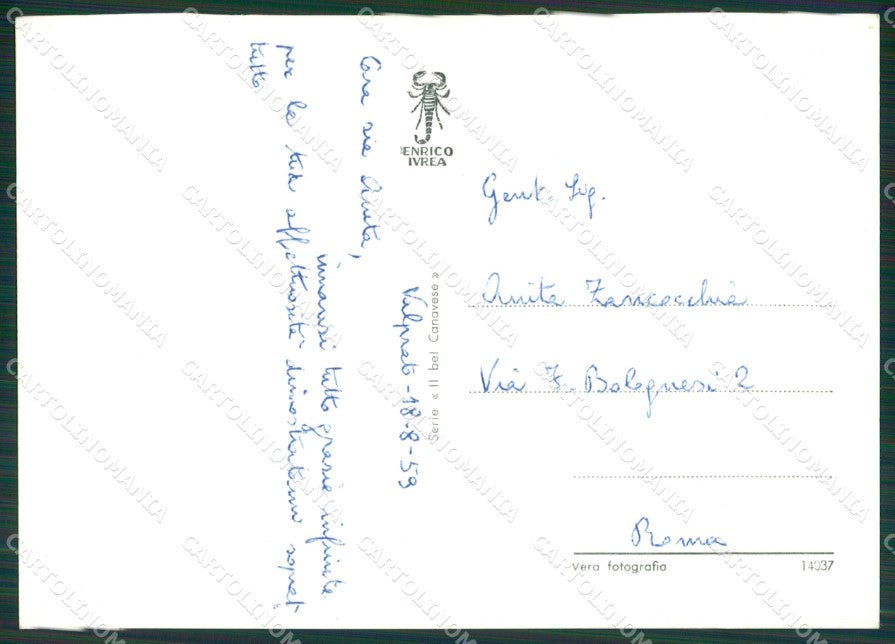 Valprato - 18-8-59
Cara zia Anita,
innanzi tutto grazie infinite
per la tua affettuosità dimostratami soprat
tutto
ENRICO
IVREA
Serie « Il bel Canavese »
Gent. Sig.
Anita Zancocchia
Via Z. Bolognesi 2
Roma
Vera fotografia 14037
CARTOLINOMANIA